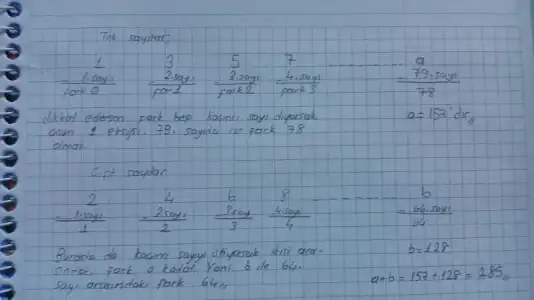 Tek sayılar;
1 3 5 7 ............ a
- 1.sayı - 2.sayı - 3.sayı - 4.sayı - 79.sayı
fark 0 fark 1 fark 2 fark 3 78
Dikkat ederseniz fark hep kaçıncı sayı diyorsak
onun 1 eksiği. 79. sayıda ise fark 78
olmalı a = 157'dir,,
Çift sayılar
2 4 6 8 b
- 1.sayı - 2.sayı - 3.sayı 4.sayı - 64.sayı
1 2 3 4 64
Burada da kaçıncı sayıyı istiyorsak ikisi ara-
sındaki fark o kadar. Yani b ile 64.
sayı arasındaki fark 64,,
b = 128
a+b = 157 + 128 = 285,,